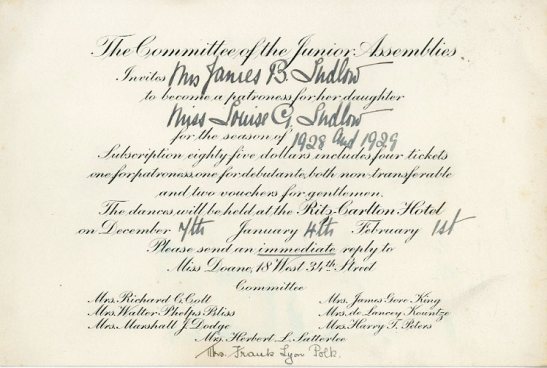 The Committee of the Junior Assemblies
Invites Mrs James B. Ludlow
to become a patroness for her daughter
Miss Louise G. Ludlow
for the season of 1928 and 1929
Subscription eighty five dollars includes four tickets
one for patroness, one for debutante, both non-transferable
and two vouchers for gentlemen.
The dances will be held at the Ritz-Carlton Hotel
on December 7th January 4th February 1st
Please send an immediate reply to
Miss Doane, 18 West 34th Street
Committee
Mrs. Richard C. Colt Mrs. James Gore King
Mrs. Walter Phelps Bliss Mrs. de Lancey Kountze
Mrs. Marshall J. Dodge Mrs. Harry T. Peters
Mrs. Herbert L. Satterlee
Mrs. Frank Lyon Polk.